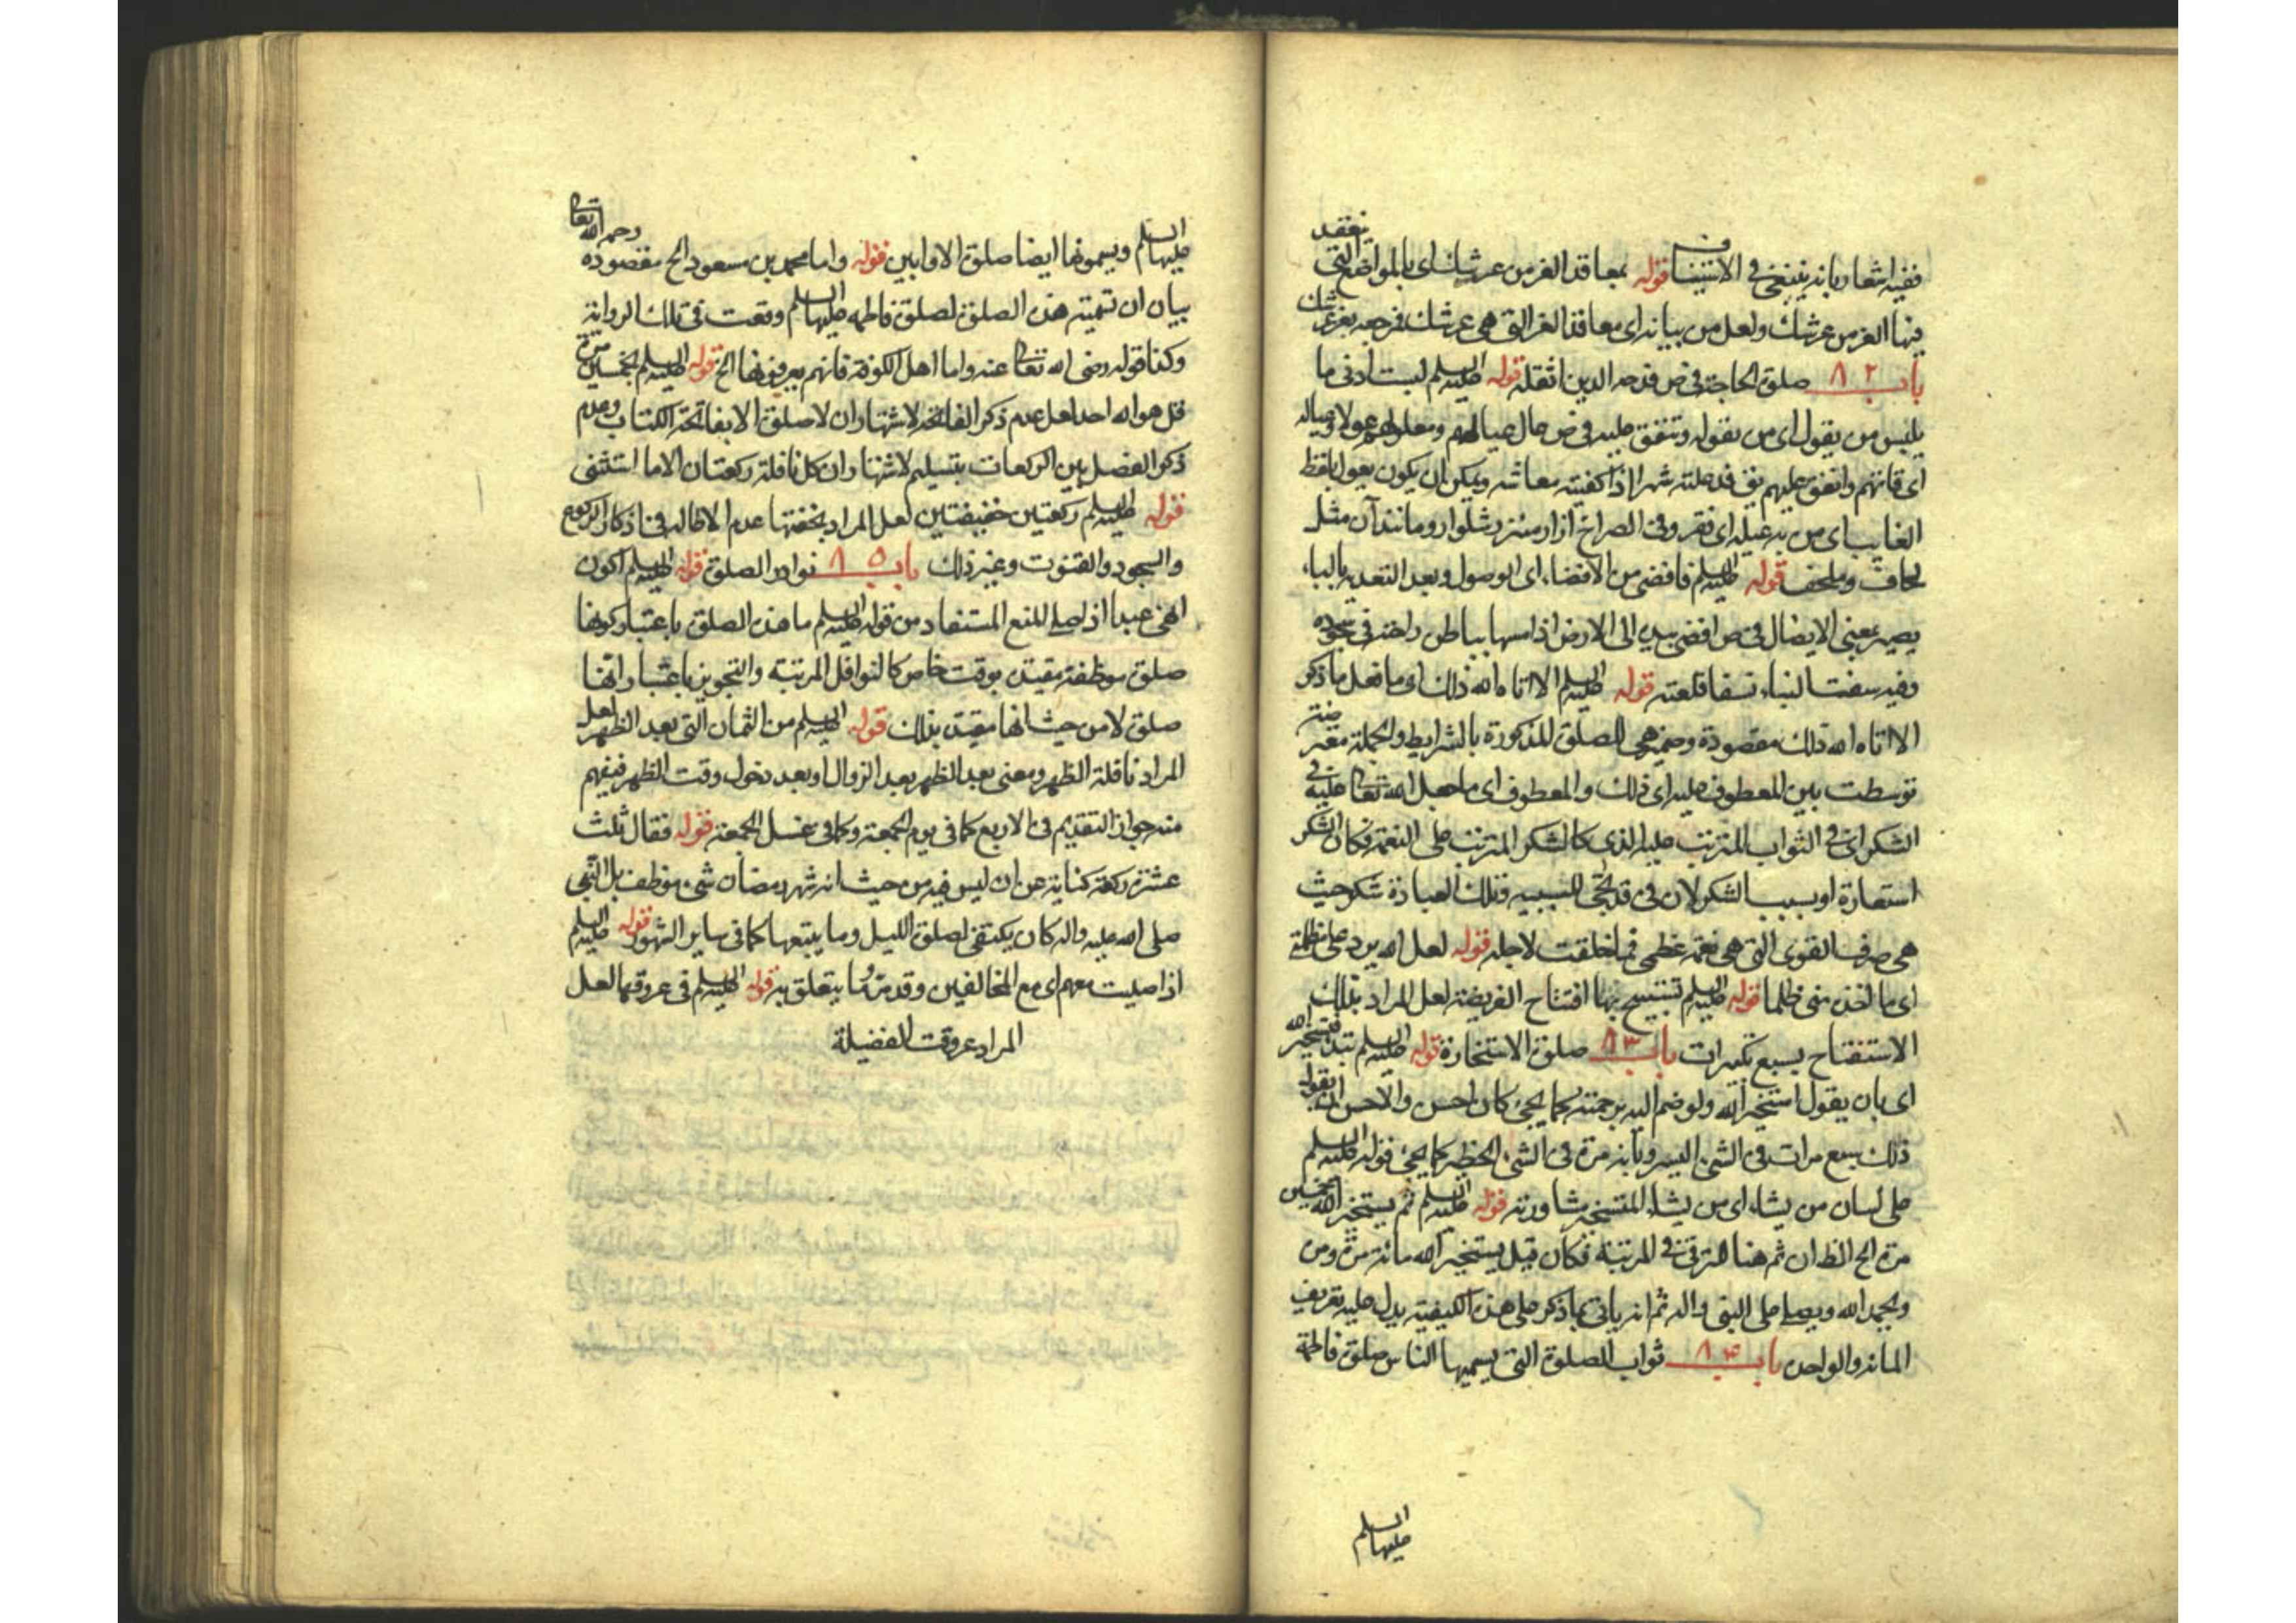 ففيه اشعار بانه ينبغي في الاستيناف قوله بمعاقد العز من عرشك اي بالمواضع التي ينعقد
فيها العز من عرشك ولعل من بيانية اي معاقد العز التي هي عرشك فرجعه بعز عرشك
باب ٨٢ صلوة الحاجة في ص فدحه الدين اثقله قوله عليه السلم لبست ادنى ما
يلبس من يقول اي من يقوله وتنفق عليه في ص عال عياله
اي قاتهم وانفق عليهم يق قد علته شهرا اذا كفيته معاشه ويمكن ان يكون يعول بلفظ
الغايب اي من به عيلة اي فقر وفي الصراح ازار مئزر شلوار ومانند آن مثل
لحاف وملحف قوله عليه السلم فافضى من الافضاء اي الوصول وبعد التعدية بالباء
يصير بمعنى الايصال في ص افضى بيده الى الارض اذا مسها بباطن راحته في سجوده
وفيه نسفت البناء نسفا قلعته قوله عليه السلم الا اتاه الله ذلك اي ما فعل ما ذكر
الا اتاه الله ذلك مقصوده وضمير هي للصلوة المذكورة بالشرايط والجملة معترضة
توسطت بين المعطوف عليه اي ذلك والمعطوف اي ما جعل الله تعالى عليه في
الشكر اي في الثواب المترتب عليه الذي كالشكر المترتب على النعمة فكان الشكر
استعارة او بسبب الشكر لان في قد تجئ للسببية فتلك العبادة شكر حيث
هي صرف القوى التي هي نعمة عظمى فيما خلقت لاجله قوله لعل الله يرد علي ظلامتي
اي ما اخذ مني ظلما قوله عليه السلم تستفتح بهما افتتاح الفريضة لعل المراد بذلك
الاستفتاح بسبع تكبيرات باب ٨٣ صلوة الاستخارة قوله عليه السلم فتستخير الله
اي بان يقول استخير الله ولو ضم اليه برحمته كما يجئ كان احسن والاحسن ان يقول
ذلك سبع مرات في الشئ اليسير ومائة مرة في الشئ الخطير كما يجئ قوله عليه السلم
على لسان من يشاء اي من يشاء المستخير مشاورته قوله عليه السلم ثم يستخير الله خمسين
مرة الخ الظ ان ثم هنا للترقي في المرتبة فكان قيل يستخير الله مائة مرة ومرة
ويحمد الله ويصلي على النبي واله ثم انه ياتي بما ذكر على هذه الكيفية يدل عليه تعريف
المائة والواحدة باب ٨٤ ثواب الصلوة التي يسميها الناس صلوة فاطمة
عليها السلم
عليها السلم ويسمونها ايضا صلوة الاوابين قوله واما محمد بن مسعود رحمه الله تعالى الخ مقصوده
بيان ان تسمية هذه الصلوة لصلوة فاطمه عليها السلم وقعت في تلك الرواية
وكذا قوله رضي الله تعالى عنه واما اهل الكوفة فانهم يعرفونها الخ قوله عليه السلم بخمسين مرة
قل هو الله احد لعل عدم ذكر الفاتحة لاشتهار ان لا صلوة الا بفاتحة الكتاب وعدم
ذكر الفصل بين الركعات بتسليم لاشتهار ان كل نافلة ركعتان الا ما استثنى
قوله عليه السلم ركعتين خفيفتين لعل المراد بخفتها عدم الاطالة في اذكار الركوع
والسجود والقنوت وغير ذلك باب ٨٥ نوادر الصلوة قوله عليه السلم اكون
انهى عبدا اذا صلى للمنع المستفاد من قوله عليه السلم ما هذه الصلوة باعتبار كونها
صلوة موظفة مقيدة بوقت خاص كالنوافل المرتبة والتجويز باعتبار انها
صلوة لا من حيث انها مقيدة بذلك قوله عليه السلم من الثمان التي بعد الظهر لعل
المراد نافلة الظهر ومعنى بعد الظهر بعد الزوال او بعد دخول وقت الظهر فيفهم
منه جواز التقديم في الاربع كما في يوم الجمعة وكما في غسل الجمعة قوله فقال ثلث
عشرة ركعة كناية عن ان ليس فيه من حيث انه شهر رمضان شئ موظف بل النبي
صلى الله عليه واله كان يكتفي لصلوة الليل وما يتبعها كما في ساير الشهور قوله عليه السلم
اذا صليت معهم اي مع المخالفين وقد مر ما يتعلق به قوله عليه السلم في عروقها لعل
المراد عروقت الفضيلة